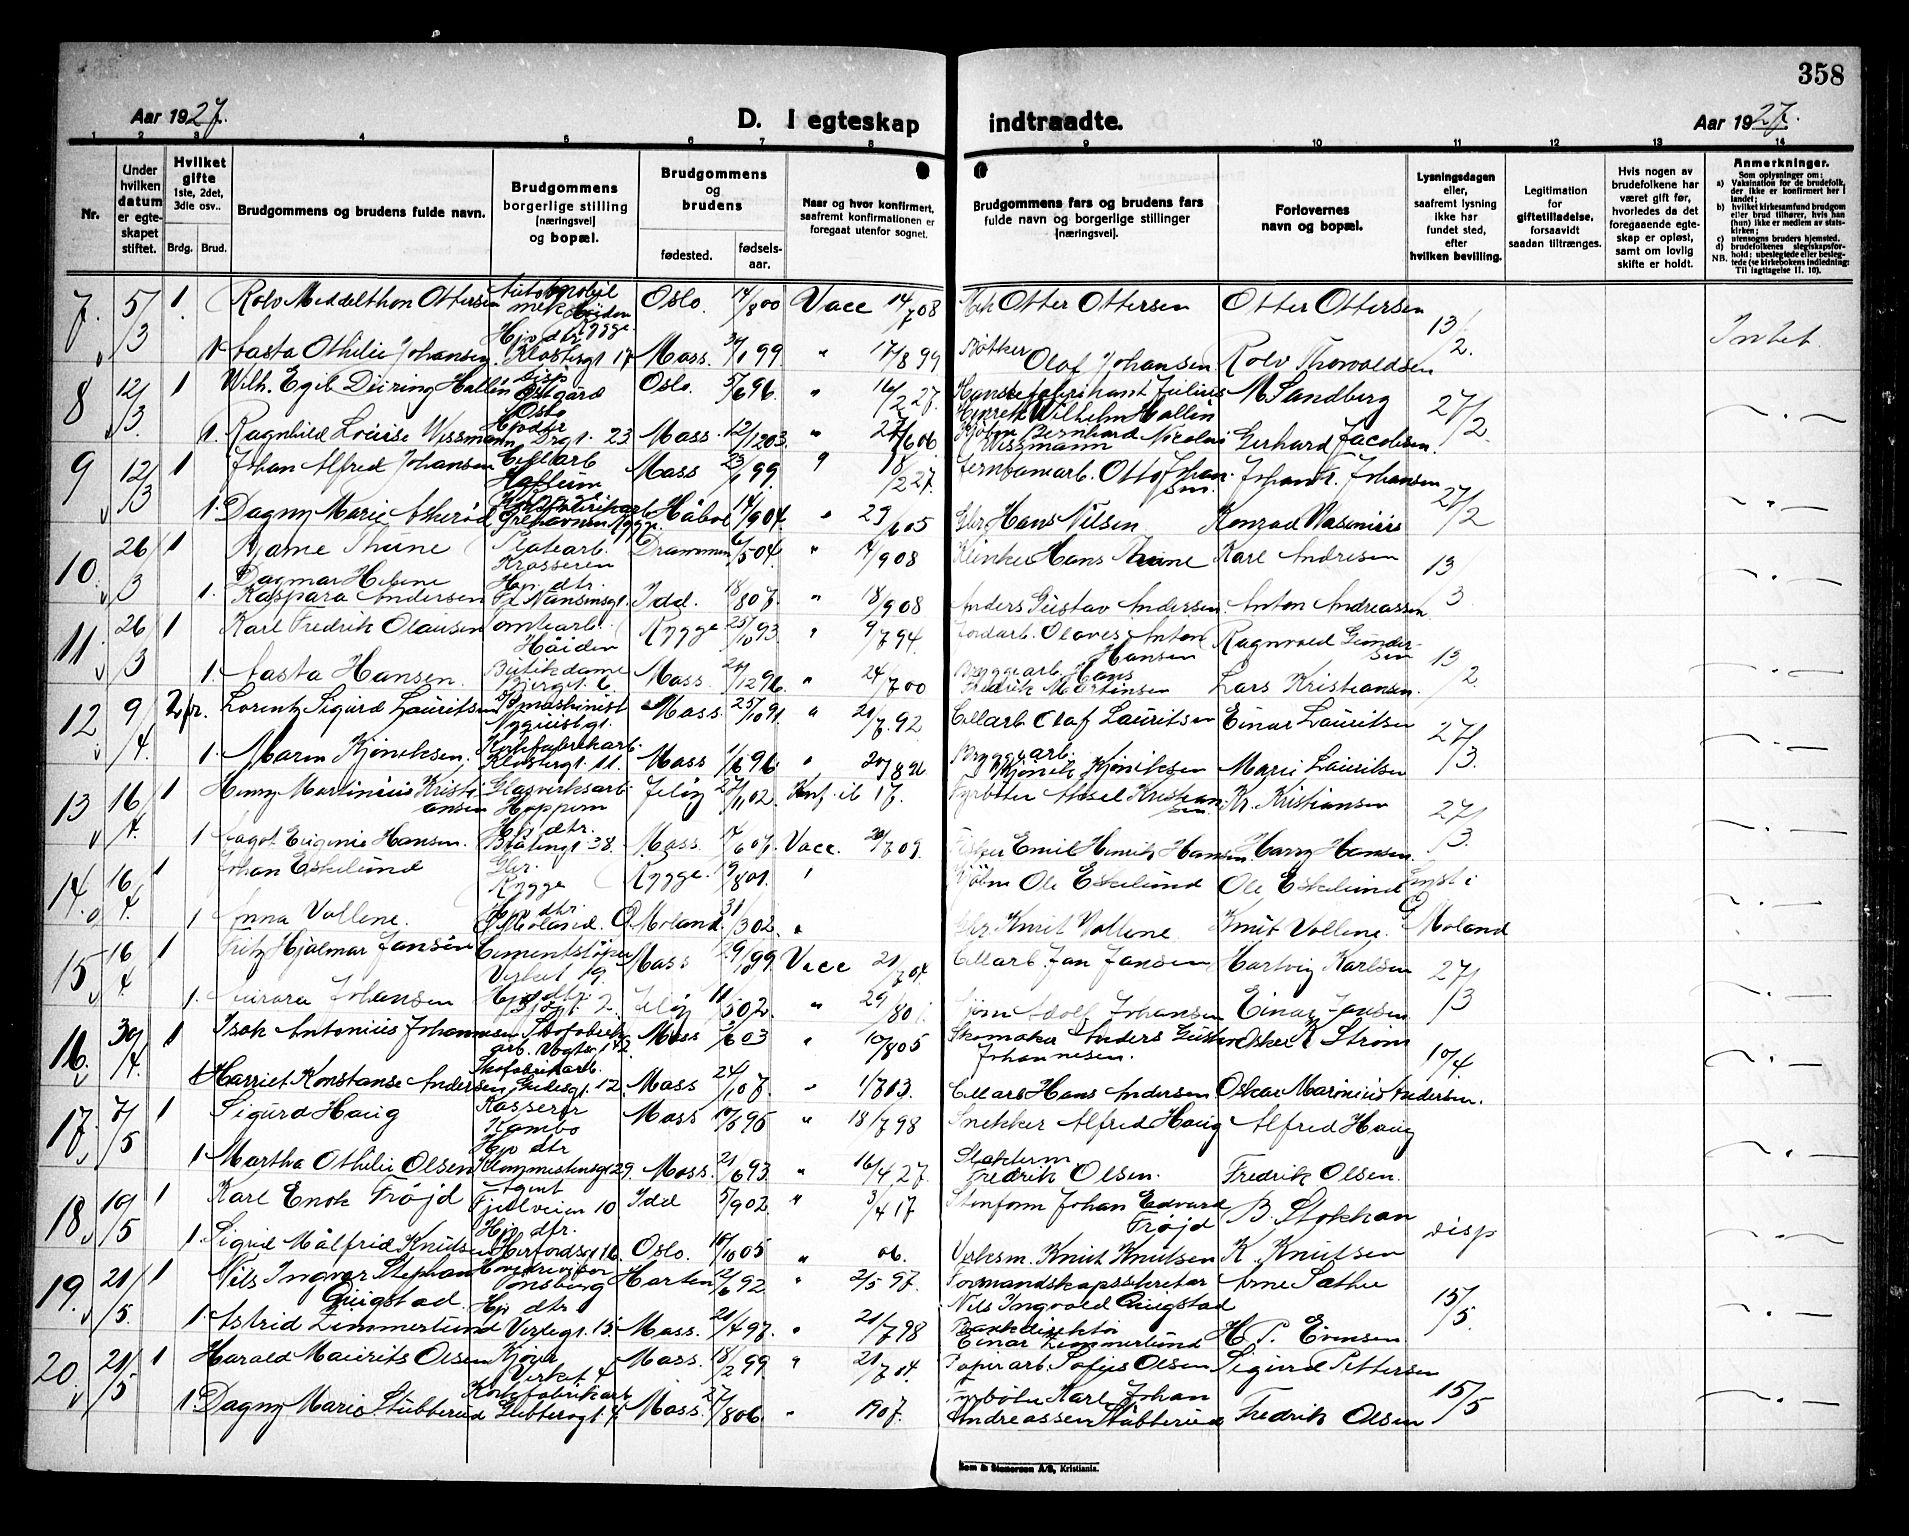 358
Aar 1927.
D. I egteskap indtraadte.
Aar 1927.
1 2 3 4 5 6 7 8 9 10 11 12 13 14
Nr.
Under hvilken datum er egteskapet stiftet.
Hvilket gifte 1ste, 2det, 3die osv..
Brdg. Brud.
Brudgommens og brudens fulde navn.
Brudgommens borgerlige stilling (næringsvei) og bopæl.
Brudgommens og brudens
fødested. fødsels-aar.
Naar og hvor konfirmert, saafremt konfirmationen er foregaat utenfor sognet.
Brudgommens fars og brudens fars fulde navn og borgerlige stillinger (næringsvei).
Forlovernes navn og bopæl.
Lysningsdagen eller, saafremt lysning ikke har fundet sted, efter hvilken bevilling.
Legitimation for giftetilladelse, forsaavidt saadan tiltrænges.
Hvis nogen av brudefolkene har været gift før, hvorledes da det foregaaende egteskap er opløst, samt om lovlig skifte er holdt.
Anmerkninger.
Som oplysninger om:
a) Vaksination for de brudefolk, der ikke er konfirmert her i landet;
b) hvilket kirkesamfund brudgom eller brud tilhører, hvis han (hun) ikke er medlem av statskirken;
c) utensogns bruders hjemsted.
d) brudefolkenes slegtskapsforhold: ubeslegtede eller beslegtede (se kirkebokens indledning: Til iagttagelse II. 10).
NB.
7. 5/3 1 Rolv Meddelthon Ottersen Automobil mek. Højden Rygge. Oslo. 14/8 00 Vacc 14/7 08 Otter Ottersen Otter Ottersen 13/2.
1 Aasta Othilie Johansen. Hjv. dtr. Klostergt. 17 Moss. 30/1 99 " 17/8 99 Bøtker Olaf Johansen Rolv Thorvaldsen Intet.
8 12/3 1 Wilh. Egil Düring Hallin Oslo Oslo. 5/6 96 " 16/2 27. Hanskefabrikant Julius Henrik Wilhelm Hallin M Sandberg 27/2
1. Ragnhild Louise Wissmann Hjv dtr Drgt. 23 Moss. 12/12 03. " 27/6 06 Bernhard Nicolai Wissmann Gerhard Jacobsen.
9 12/3 1 Johan Alfred Johansen Cellarb Hafslund Moss 23/1 99. " 18/2 27. Jernbanearb. Otto Johansen. Johan A. Johansen 27/2
1. Dagny Marie Askerød Rygge. Håbol 14/9 04. " 29/6 05 Gbr Hans Nilsen Konrad Wasenius
10. 26/3 1 Bjarne Thune Platearb. Krosseren Drammen 6/5 04. " 14/9 08 Hans Thune Karl Andresen 13/3
1. Dagmar Helene Kaspara Andersen Hjv. dtr. Fr. Nansensgt. Idd. 18/8 07. " 18/9 08 Anders Gustav Andersen Anton Andreassen
11. 26/3 1 Karl Fredrik Olausen Tomtearb. Høiden Rygge 25/10 93 " 9/7 94. Jordarb. Olaves Anton Hansen Ragnvald Gundersen 13/2
1. Aasta Hansen. Butikdame Bjergt. 6 Moss. 20/12 96. " 24/7 00 Bryggearb Hans Fredrik Martinsen Lars Kristiansen.
12 9/4. 2 fr. Lorentz Sigurd Lauritsen Maskinist Moss. 25/10 91. " 21/7. 92 Cellarb Olaf Lauritsen Einar Lauritsen 27/3.
1. Maren Kjøniksen. Korkfabrikarb. Klostergt. 11. Moss 1/6 96. " 20/8 96 Bryggearb. Kjønik Kjøniksen Marie Lauritsen
13 16/4. 1 Henry Martinius Kristiansen Glasverksarb. Hoppern Jeløy 27/11 02. Konf. il 17. Fyrbøter Aksel Kristiansen. Kr. Kristiansen 27/3.
1 Aagot Eugenie Hansen. Hjv dtr. Bråtengt 38. Moss. 14/6 07. Vacc. 20/7 09. Fisker Emil Henrik Hansen Harry Hansen.
14. 16/4. 1 Johan Eskelund Gbr. Rygge Rygge. 19/8 01. " Ole Eskelund Ole Eskelund Lyst i Ø Moland
1 Anna Vollene. Hjv. dtr. Ø Moland. Ø Moland. 31/3 02. " Gbr Knut Vollene. Knut Vollene.
15. 16/4. 1 Fritz Hjalmar Jansen Cementstøper Verket 19. Moss 29/10 99. Vacc 21/7 04. Cellarb. Jan Jansen Hartvig Karlsen 27/3
1. Aurora Johansen Hjv dtr. 2. Jeløy 11/5 02. " 29/8 01. Bjørn Adolf Johansen Einar Jansen
16. 30/4. 1 Isak Antonius Johannesen Skofabrikarb. Vogtsgt. 12. Moss 2/6 03 " 10/8 05 Skomaker Anders Gustav Johannesen. Oskar K Strøm 10/4.
1 Harriet Konstanse Andersen Skofabrikarb. Gudesgt. 12. Moss 24/1 07. " 1/7 13. Cellarb Hans Andersen Oskar Maronius Andersen.
17. 7/5 1 Sigurd Haug Kasserer Kambo Moss 10/5 95 " 18/7 98 Snekker Alfred Haug Alfred Haug
1 Martha Othilie Olsen Hjv dtr 29. Moss. 21/6 93. " 16/4 27. Fredrik Olsen. Fredrik Olsen.
18. 10/5 1 Karl Enok Frøjd Agent Fjeldveien 10 Idd 5/9 02. " 3/4 17 Stenform Johan Edvard Frøjd B. Stokkan disp
1. Sigrid Målfrid Knudsen Hjv. dtr. Herfordsgt 16. Oslo. 10/10 05 " 06. Verksm. Knut Knutsen K. Knutsen
19. 21/5. 1 Nils Ingvar Stephan Quigstad Hovedrevisor Tønsberg Horten 12/6 92 " 2/5 97. Formandskapssekretær Nils Ingvald Quigstad Arne Sæthre 15/5.
1. Astrid Zimmerlund Hjv dtr Verlegt. 15. Moss. 21/4 97. " 21/7 98 Bankdirektør Einar Zimmerlund H P. Evensen
20. 21/5 1 Harald Mauritz Olsen Kjører Verket 4 Moss. 18/2 99 " 21/7 04. Papirarb. Sofus Olsen Sigurd Pettersen 15/5
1 Dagny Marie Stubberud Korkfabrikarb Moss. 27/8 06. " 1907. Fyrbøter Karl Johan Andreassen Stubberud Fredrik Olsen
Sem & Stenersen A/S, Kristiania.